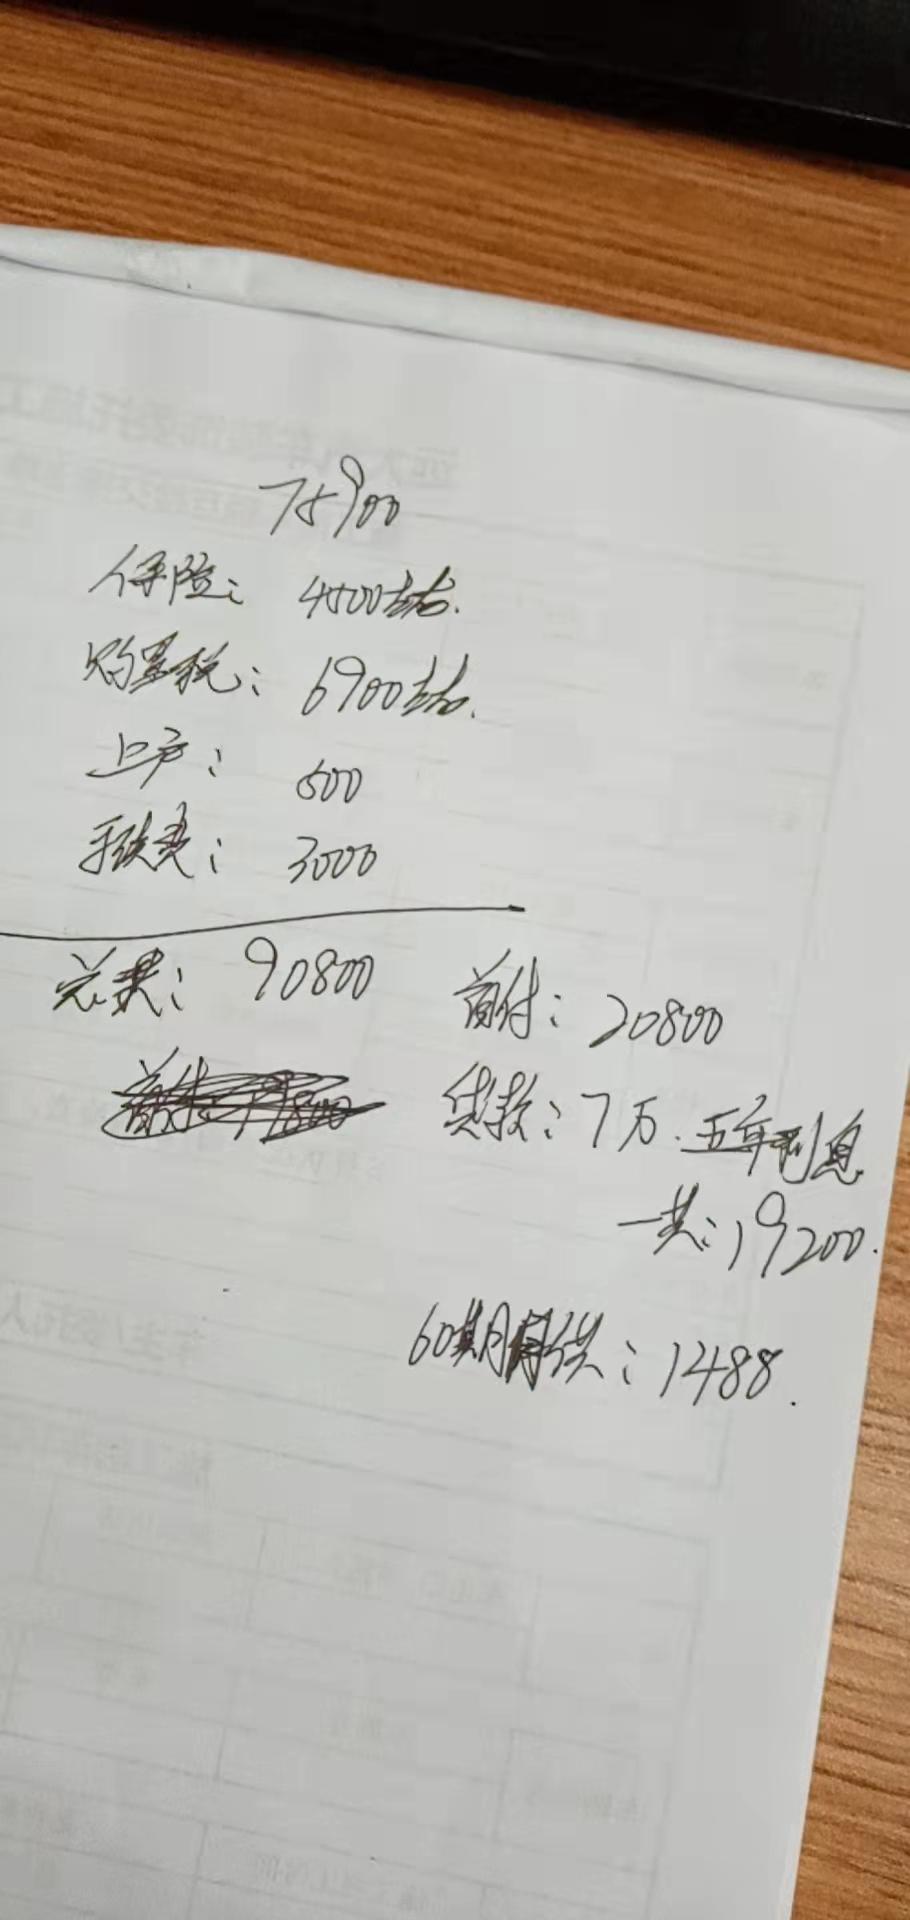 75900
保险: 4500左右.
购置税: 6900左右.
上户: 500
手续费: 3000
总共: 90800
首付: 20800
贷款: 7万. 五年利息
一共: 19200.
60期月供: 1488.